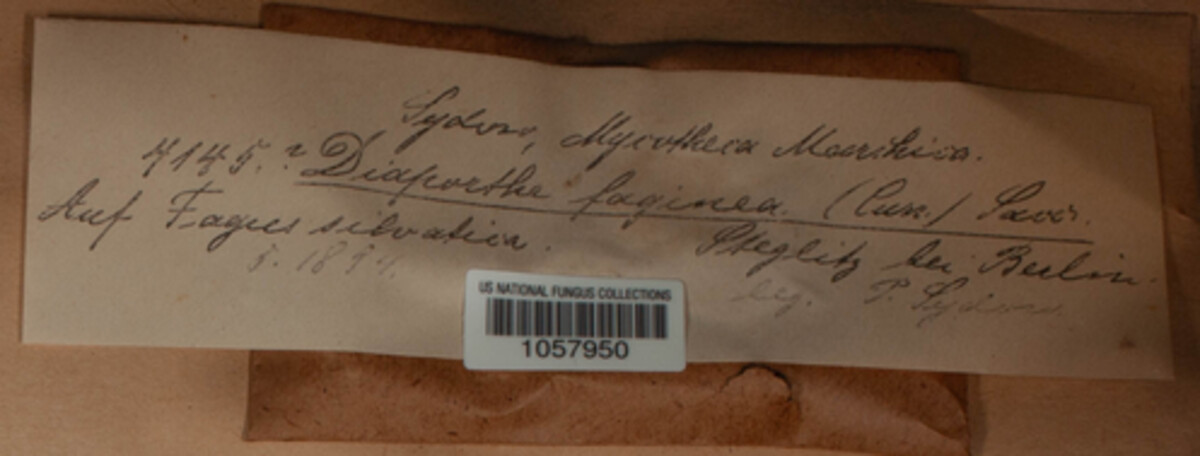 Sydow, Mycotheca Marchica.
4145.? Diaporthe faginea. (Curr.) Sacc.
Auf Fagus silvatica. Steglitz bei Berlin.
5. 1894. leg. P. Sydow.
US NATIONAL FUNGUS COLLECTIONS
1057950